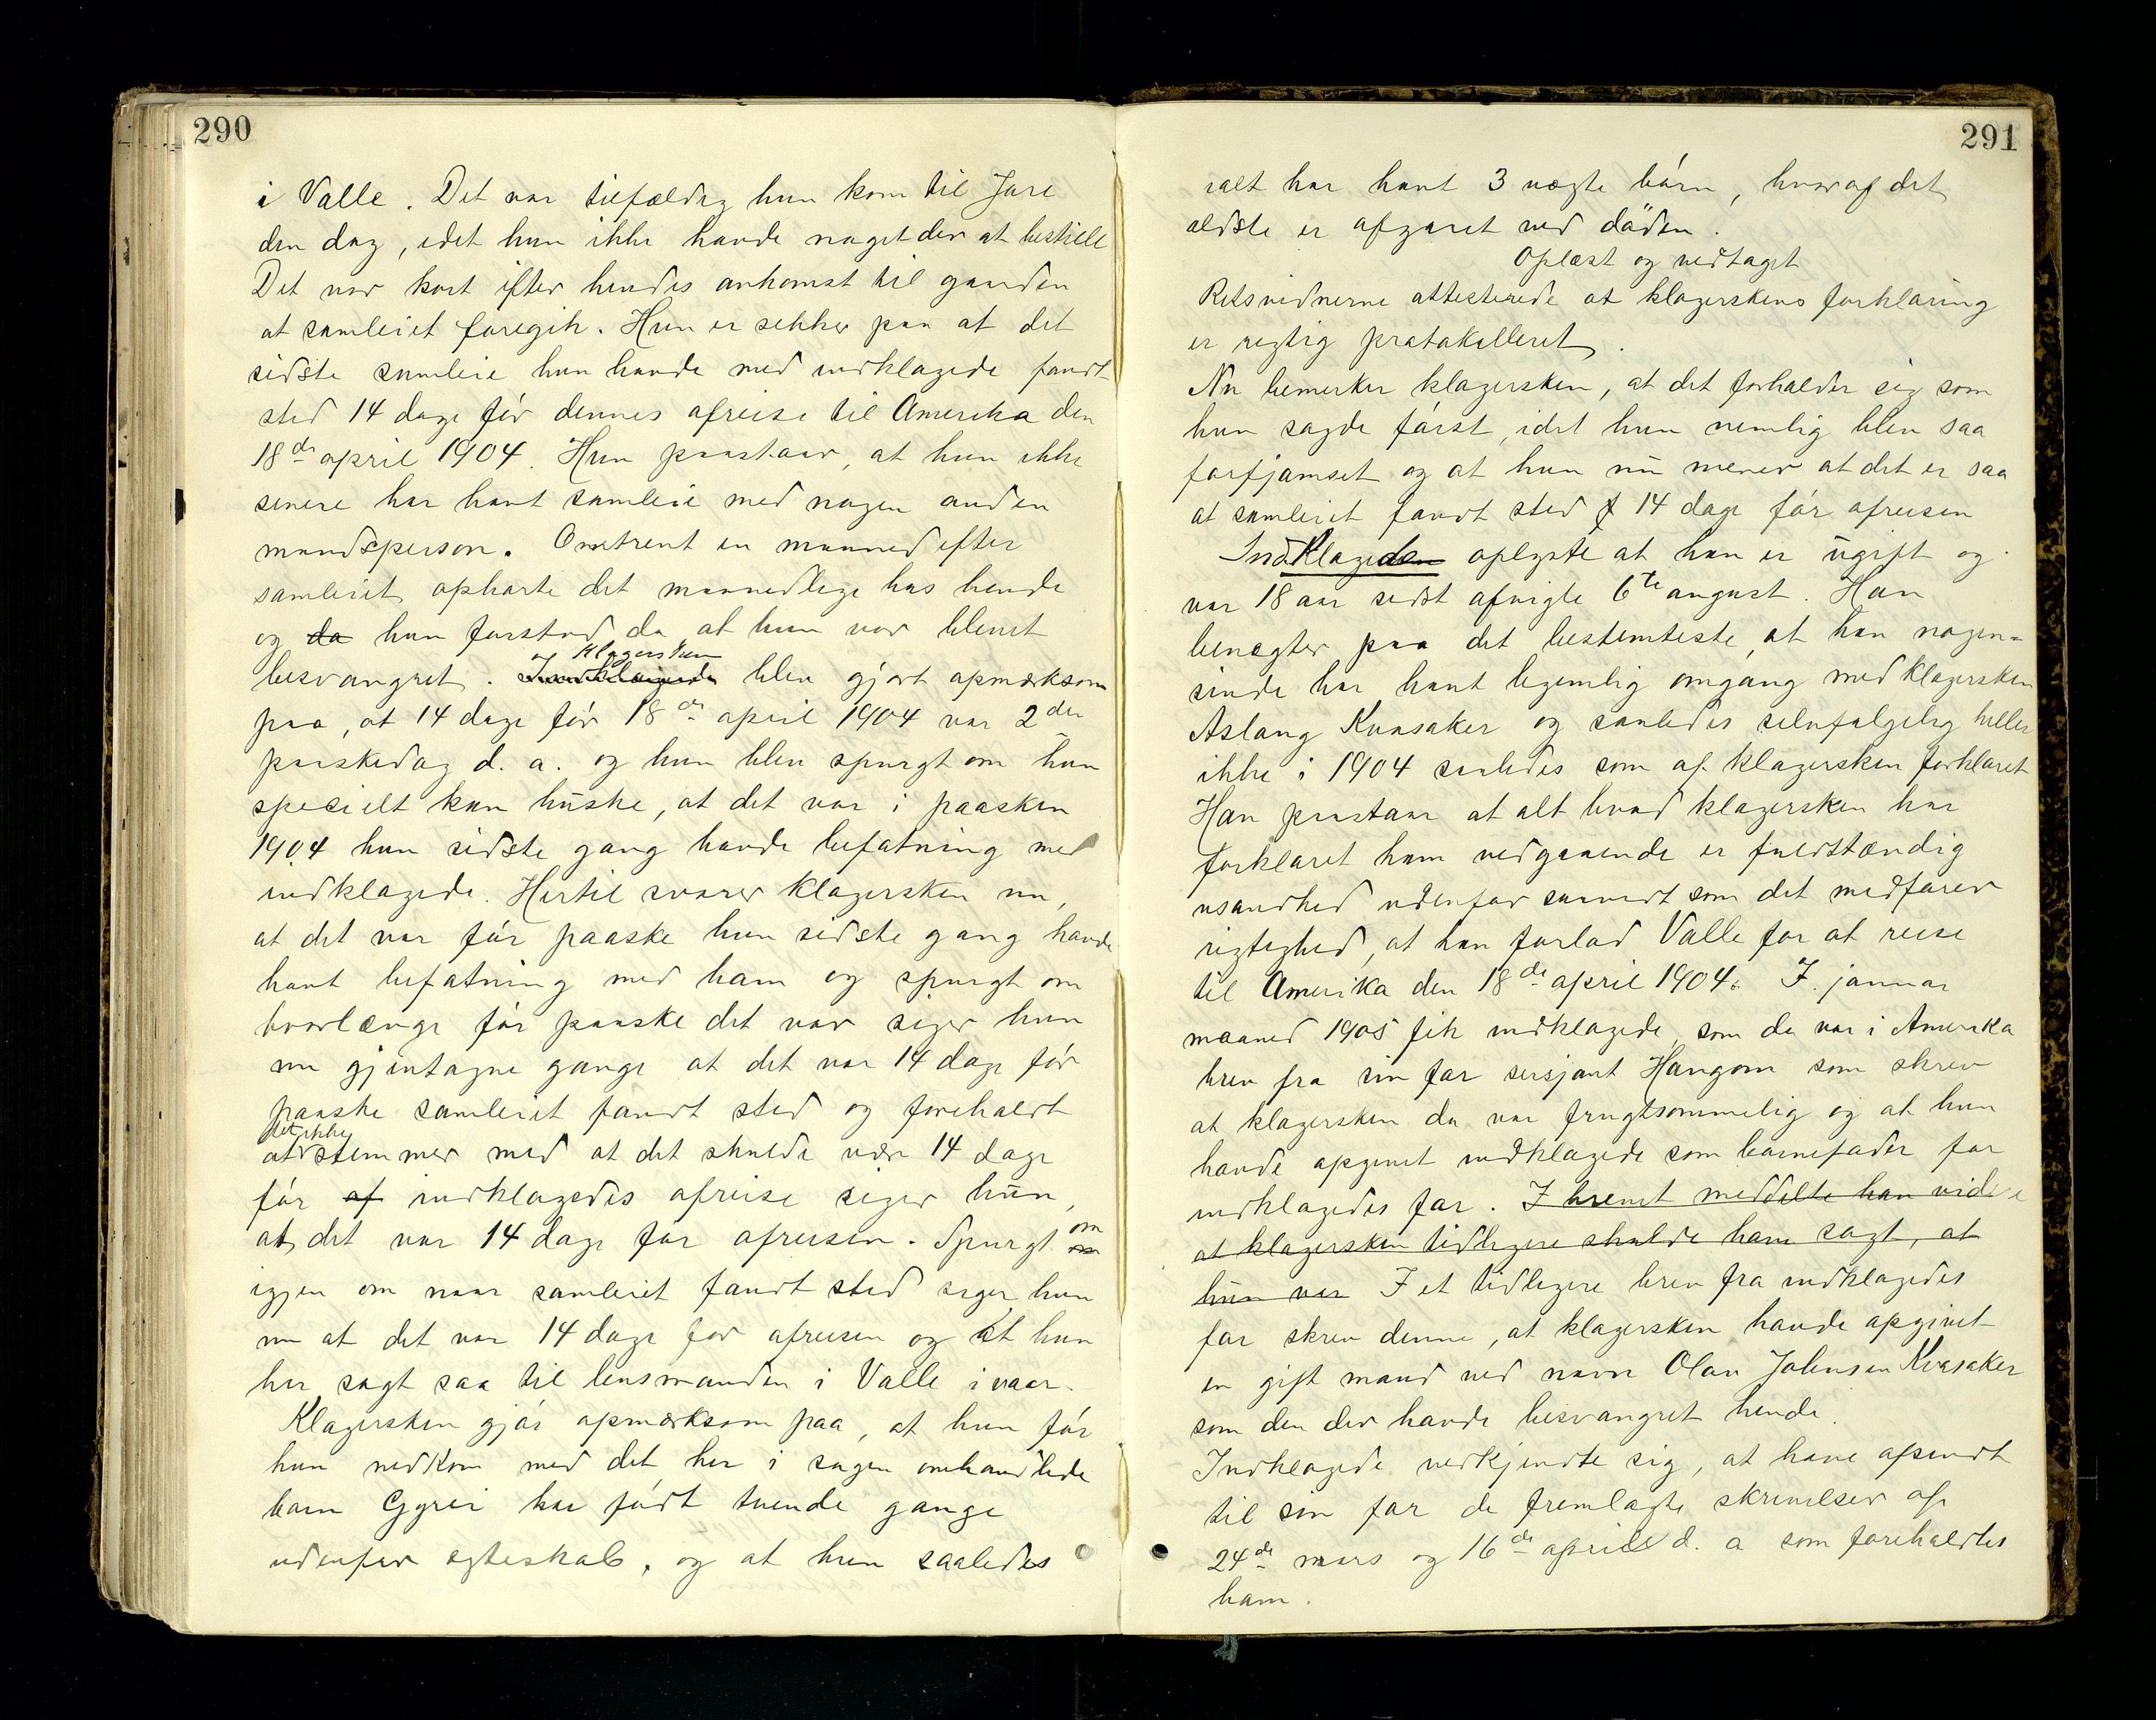 290
i Valle. Det var tilfældig hun kom til Jore
den dag, idet hun ikke havde noget der at bestille
Det var kort efter hendes ankomst til gaarden
at samleiet foregik. Hun er sikker paa at det
sidste samleie hun havde med indklagede fandt
sted 14 dage før dennes afreise til Amerika den
18de april 1904. Hun paastaar, at hun ikke
senere har havt samleie med nogen anden
mandsperson. Omtrent en maaned efter
samleiet ophørte det maanedlige hos hende
og da hun forstod da at hun var blevet
besvangret. Indklagede og Klagersken blev gjort opmærksom
paa, at 14 dage før 18de april 1904 var 2den
paaskedag d. a. og hun blev spurgt om hun
specielt kan huske, at det var i paasken
1904 hun sidste gang havde befatning med
indklagede. Hertil svarer klagersken nu,
at det var før paaske hun sidste gang havde
havt befatning med ham og spurgt om
hvorlænge før paaske det var siger hun
nu gjentagne gange at det var 14 dage før
paaske samleiet fandt sted og foreholdt
at det ikke stemmer med at det skulde være 14 dage
før af indklagedes afreise siger hun,
at det var 14 dage før afreisen. Spurgt om om
igjen om naar samleiet fandt sted siger hun
nu at det var 14 dage før afreisen og at hun
har sagt saa til lensmanden i Valle ivaar.
Klagersken gjør opmærksom paa, at hun før
hun nedkom med det her i sagen omhandlede
barn Gyrei har født tvende gange
udenfor egteskab, og at hun saaledes
291
ialt har havt 3 uægte børn, hvoraf det
ældste er afgaaet ved döden.
Oplæst og vedtaget
Retsvidnerne attesterede at klagerskens forklaring
er rigtig protokolleret.
Nu bemerker klagersken, at det forholder sig som
hun sagde først, idet hun nemlig blev saa
forfjamset og at hun nu mener at det er saa
at samleiet fandt sted f 14 dage før afreisen
Indklageden oplyste at han er ugift og
var 18 aar sidst afvigte 6te august. Han
benægter paa det bestemteste, at han nogen-
sinde har havt legemlig omgang med klagersken
Aslaug Kvasaker og saaledes selvfølgelig heller
ikke i 1904 saaledes som af klagersken forklaret
Han paastaar at alt hvad klagersken har
forklaret ham vedgaaende er fuldstændig
usandhed udenfor saavidt som det medfører
rigtighed, at han forlod Valle for at reise
til Amerika den 18de april 1904. I januar
maaned 1905 fik indklagede, som da var i Amerika
brev fra sin far sersjant Haugom som skrev
at klagersken da var frugtsommelig og at hun
havde opgivet indklagede som barnefader for
indklagedes far. I brevet meddelte han videre
at klagersken tidligere skulde have sagt, at
hun var I et tidligere brev fra indklagedes
far skrev denne, at klagersken havde opgivet
en gift mand ved navn Olav Johnsen Kvasaker
som den der havde besvangret hende.
Indklagede vedkjendte sig, at have afsendt
til sin far de fremlagte skrivelser af
24de mars og 16de april d. a som foreholdtes
ham.